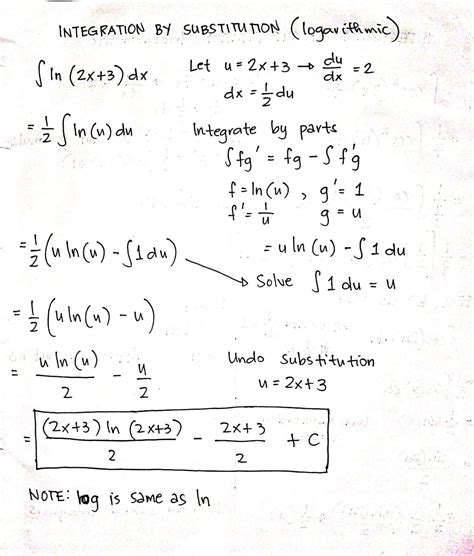 INTEGRATION BY SUBSTITUTION (logarithmic)
∫ ln (2x+3) dx
Let u = 2x+3 → du/dx = 2
dx = 1/2 du
= 1/2 ∫ ln(u) du
Integrate by parts
∫ fg' = fg - ∫ f'g
f = ln(u) , g' = 1
f' = 1/u g = u
= 1/2 (u ln(u) - ∫ 1 du)
= u ln (u) - ∫ 1 du
→ Solve ∫ 1 du = u
= 1/2 (u ln(u) - u)
= u ln (u)/2 - u/2
Undo substitution
u = 2x+3
= (2x+3) ln (2x+3)/2 - 2x+3/2 + C
NOTE: log is same as ln